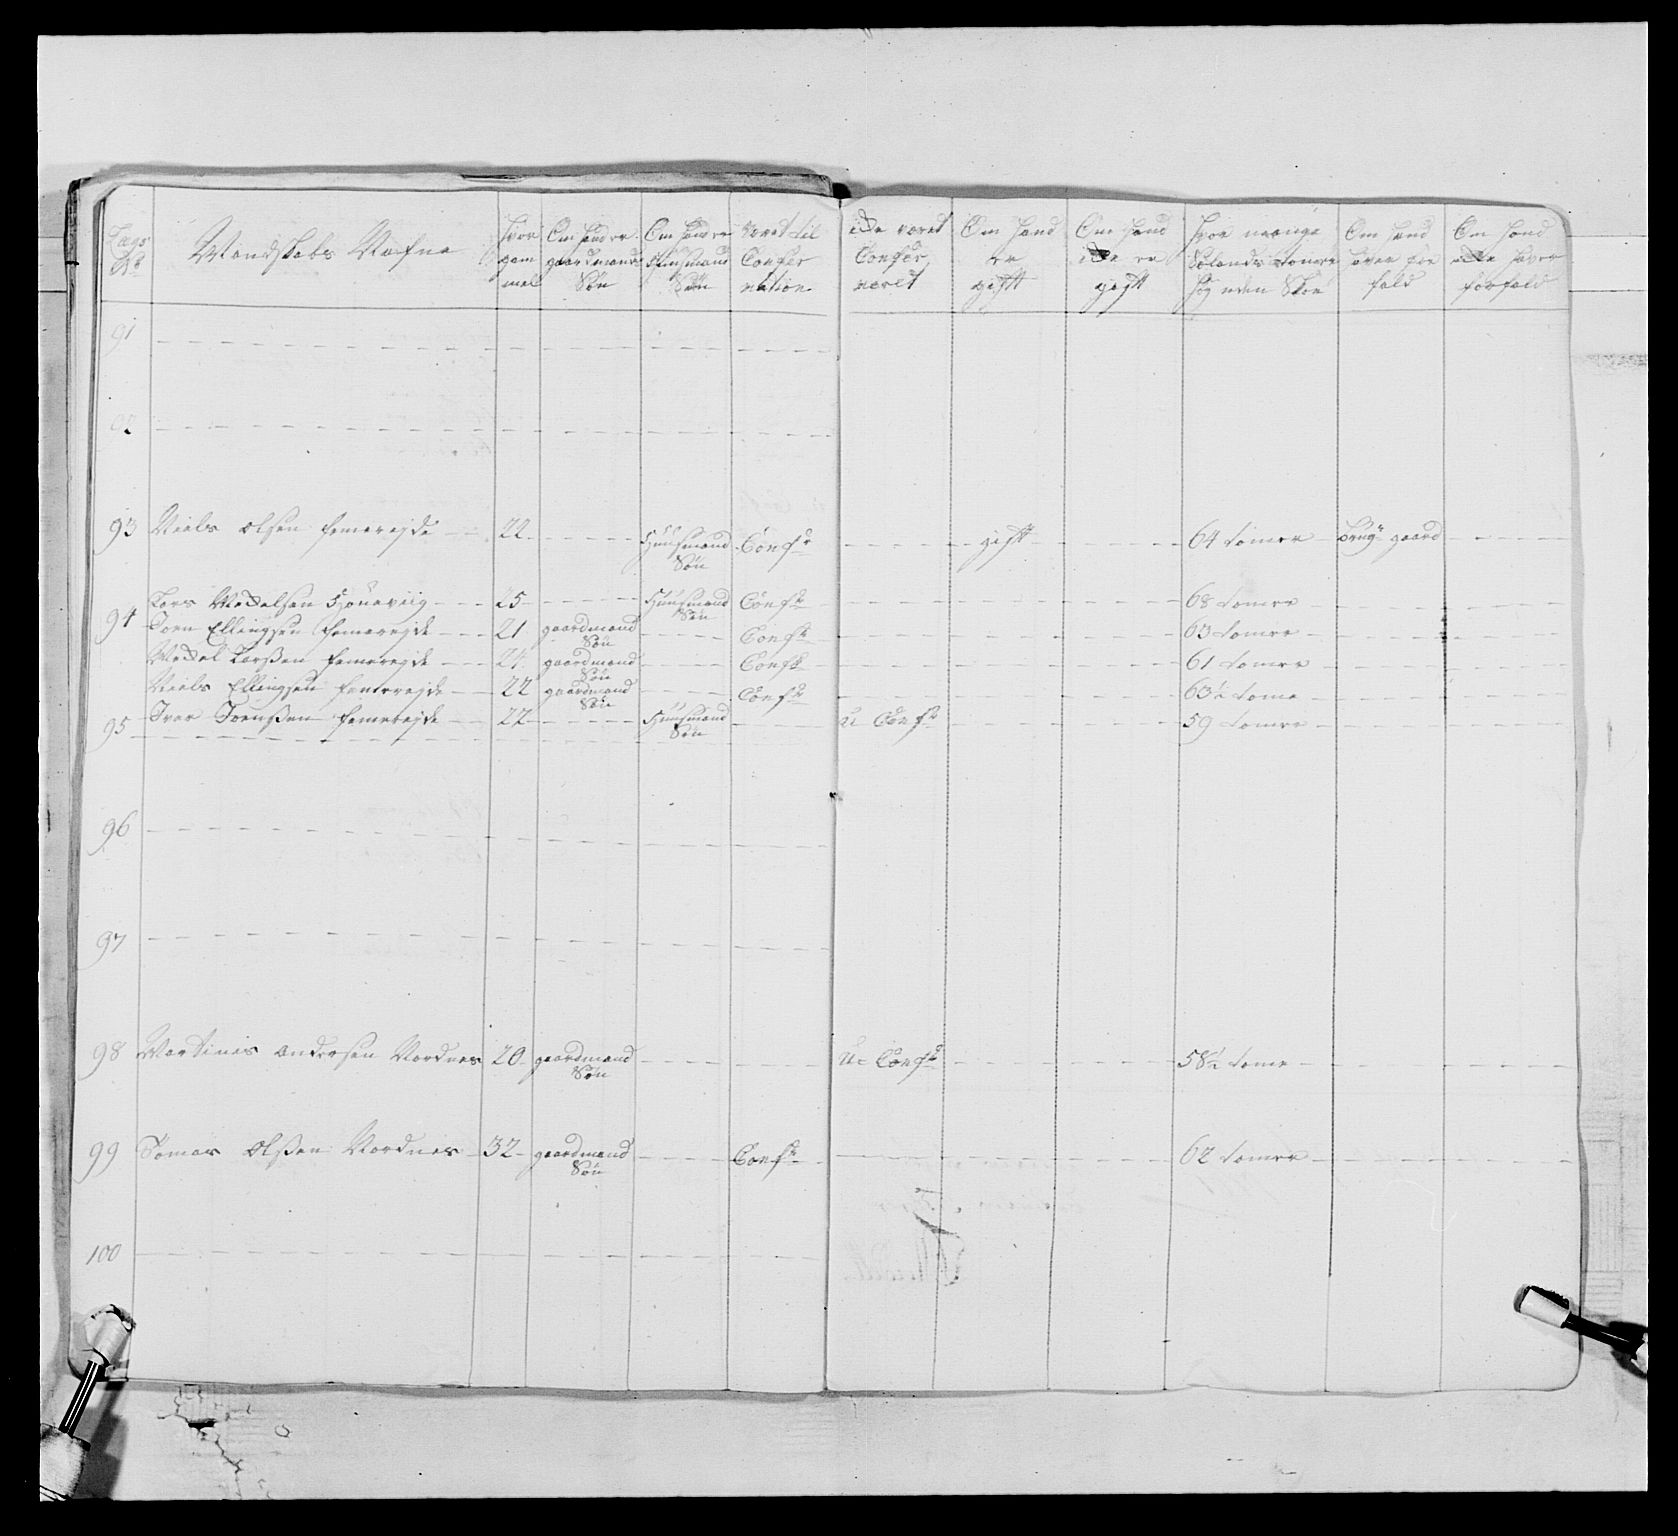 Lægs No | Mandskabs Nafne | Hvor gammel | Om hand er gaardmands Søn | Om hand er Huusmand Søn | været til Confermation | icke været Confermeret | Om hand er gift | Om hand icke er gift | Hvor mange Sølands tomer høg uden Skoe | Om hand haver forfald | Om hand icke haver forfald
91
92
93 Niels Olsen femerejde 22 Huusmand Søn Confr gift 64 tomer brug gaard
94 Lars Mickelsen 25 Huusmand Søn Confr 68 tomer
Joen Ellingsen femerejde 21 gaardmand Søn Confr 63 tomer
Mickel Larsen femerejde 24 gaardmand Søn Confr 61 tomer
Niels Ellingsen femerejde 22 gaardmand Søn Confr 63½ tome
Iver Joenssen femerejde 22 Huusmand Søn u Confr 59 tomer
95
96
97
98 Martinus Andersen Nordnes 20 gaardmand Søn u Confr 58½ tome
99 Tomas Olssen Nordnes 32 gaardmand Søn Confr 62 tomer
100